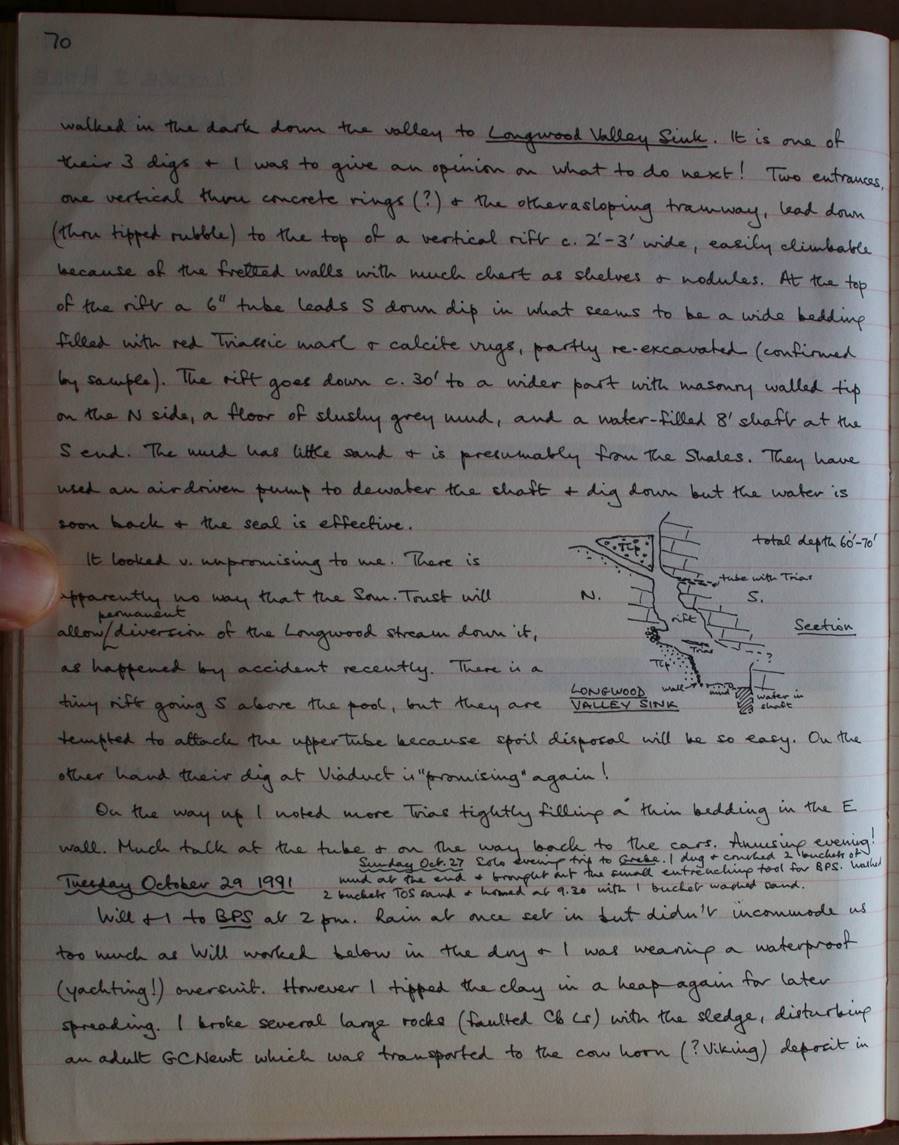 70
walked in the dark down the valley to Longwood Valley Sink. It is one of
their 3 digs + I was to give an opinion on what to do next! Two entrances,
one vertical thru concrete rings (?) + the other a sloping tramway, lead down
(thru tipped rubble) to the top of a vertical rift c. 2'-3' wide, easily climbable
because of the fretted walls with much chert as shelves + nodules. At the top
of the rift a 6" tube leads S down dip in what seems to be a wide bedding
filled with red Triassic marl + calcite vugs, partly re-excavated (confirmed
by sample). The rift goes down c. 30' to a wider part with masonry walled tip
on the N side, a floor of slushy grey mud, and a water-filled 8' shaft at the
S end. The mud has little sand + is presumably from the Shales. They have
used an air driven pump to dewater the shaft + dig down but the water is
soon back + the seal is effective.
It looked v. unpromising to me. There is
apparently no way that the Som. Trust will
permanent
allow diversion of the Longwood stream down it,
as happened by accident recently. There is a
tiny rift going S above the pool, but they are
Tip
total depth 60'-70'
tube with Trias
N.
S.
rift
Section
Trias
?
Tip
wall
mud
water in
shaft
LONGWOOD
VALLEY SINK
tempted to attack the upper tube because spoil disposal will be so easy. On the
other hand their dig at Viaduct is "promising" again!
On the way up I noted more Trias tightly filling a thin bedding in the E
wall. Much talk at the tube + on the way back to the cars. Amusing evening!
Sunday Oct. 27 Solo evening trip to Grebe. I dug + crushed 2 buckets of
mud at the end + brought out the small entrenching tool for BPS. Washed
2 buckets TOS sand + homed at 9.30 with 1 bucket washed sand.
Tuesday October 29 1991
Will + I to BPS at 2 pm. Rain at once set in but didn't incommode us
too much as Will worked below in the dry + I was wearing a waterproof
(yachting!) oversuit. However I tipped the clay in a heap again for later
spreading. I broke several large rocks (faulted Cb Ls) with the sledge, disturbing
an adult GCNewt which was transported to the cow horn (? Viking) deposit in